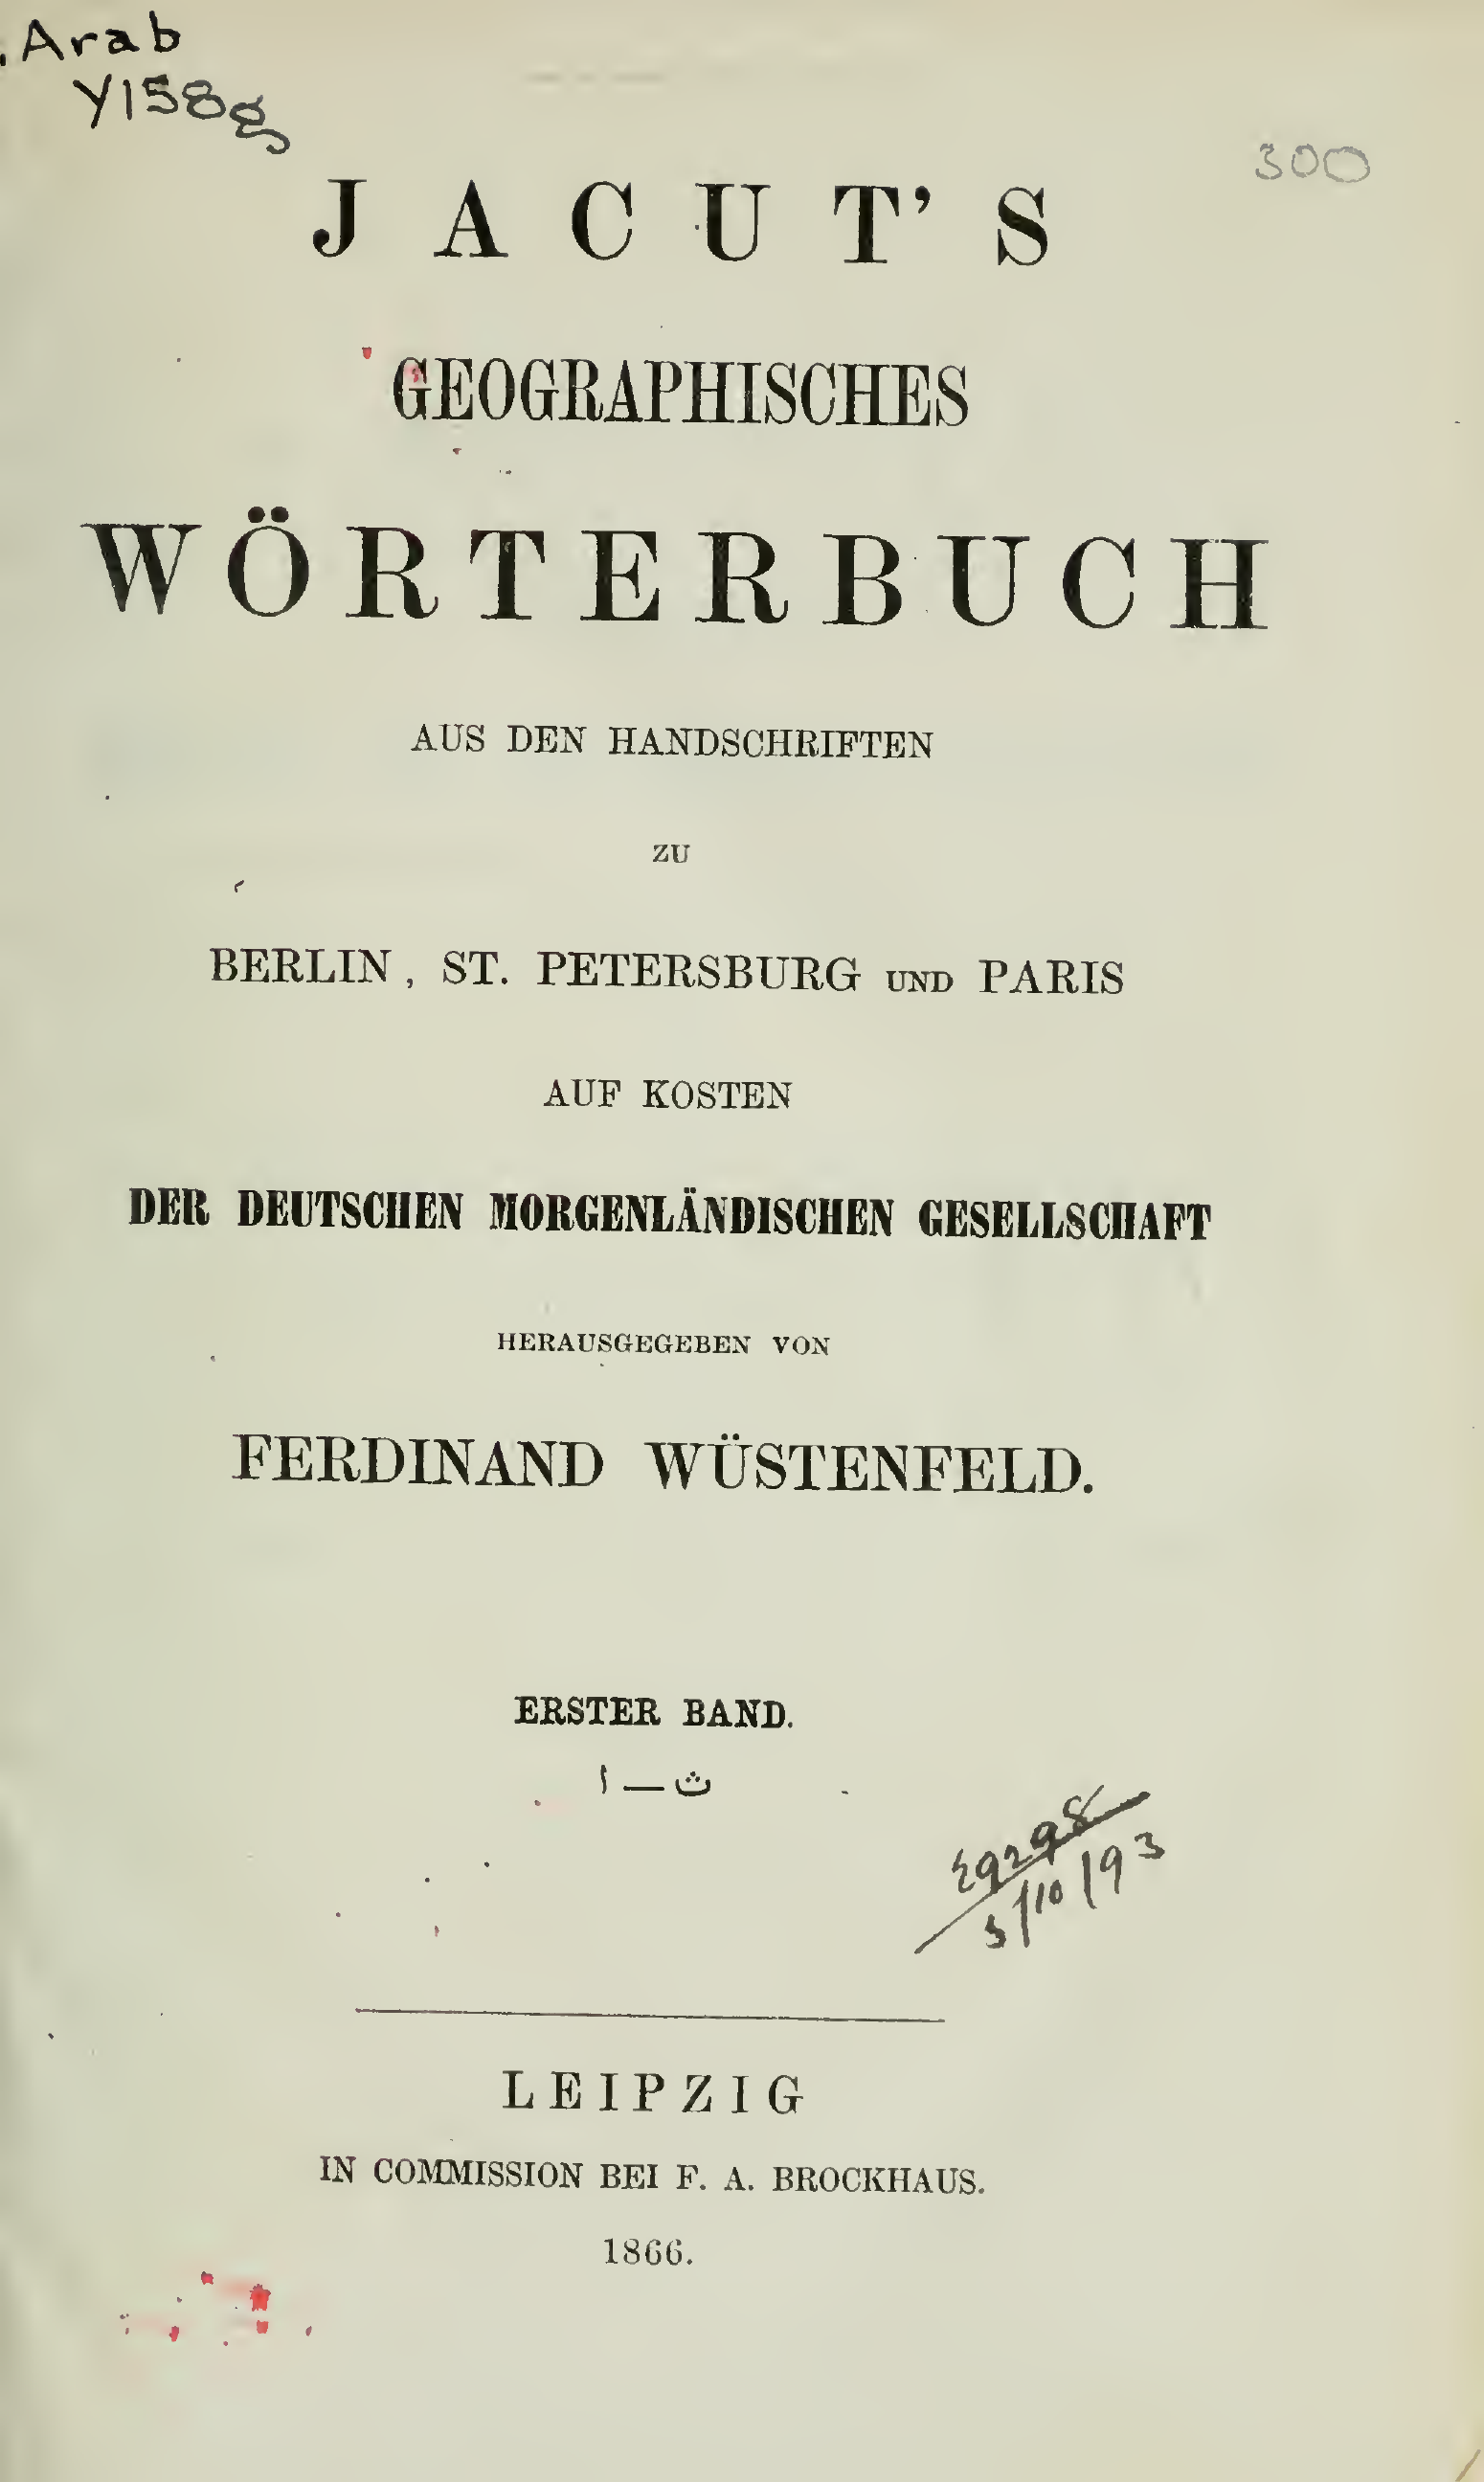 Arab
Y158g
300
JACUT'S
GEOGRAPHISCHES
WÖRTERBUCH
AUS DEN HANDSCHRIFTEN
ZU
BERLIN, ST. PETERSBURG UND PARIS
AUF KOSTEN
DER DEUTSCHEN MORGENLÄNDISCHEN GESELLSCHAFT
HERAUSGEGEBEN VON
FERDINAND WÜSTENFELD.
ERSTER BAND.
ا — ث
LEIPZIG
IN COMMISSION BEI F. A. BROCKHAUS.
1866.